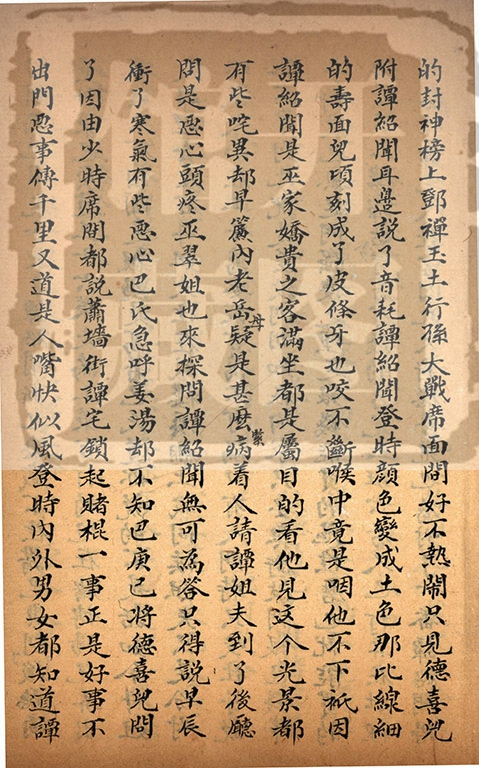 的封神榜上鄧禪玉土行孫大戰席面間好不熱閙只見德喜兒
附譚紹聞耳邊說了音耗譚紹聞登時顔色變成土色那比線細
的壽面兒頃刻成了皮條牙也咬不斷喉中竟是咽他不下衹因
譚紹聞是巫家嬌貴之客滿坐都是屬目的看他見这个光景都
有些咤異却早簾內老岳母疑是甚麽緊病着人請譚姐夫到了後廳
問是惡心頭疼巫翠姐也來探問譚紹聞無可爲答只得説早辰
衝了寒氣有些惡心巴氏急呼姜湯却不知巴庚已將德喜兒問
了因由少時席間都説蕭墻街譚宅鎖起賭棍一事正是好事不
出門惡事傳千里又道是人嘴快似風登時內外男女都知道譚